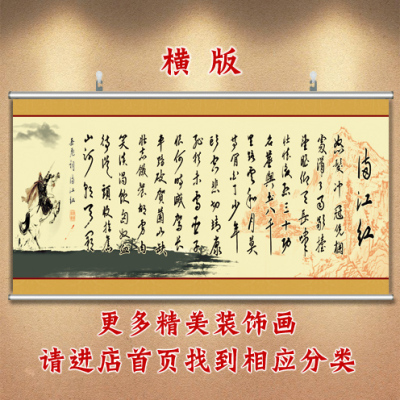 横版
满江红
怒髮冲冠凭栏
處潇潇雨歇抬
望眼仰天长啸
壮怀激烈三十功
名尘与土八千
里路云和月莫
等闲白了少年
头空悲切靖康
耻犹未雪臣子
恨何时灭驾长
车踏破贺兰山缺
壮志饥餐胡虏肉
笑谈渴饮匈奴血
待从头收拾旧
山河朝天阙
岳飞词满江红
更多精美装饰画
请进店首页找到相应分类